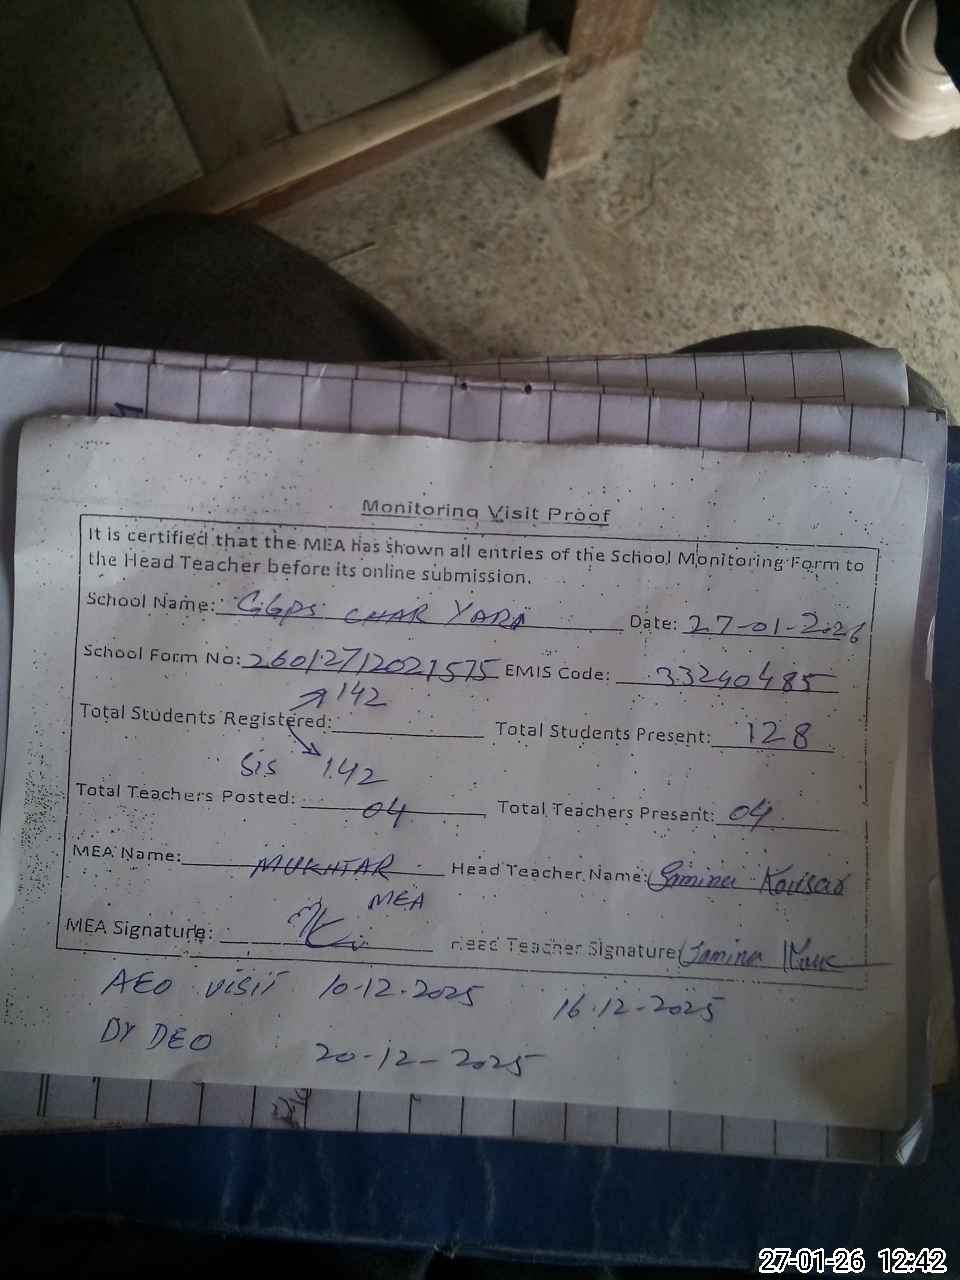 Monitoring Visit Proof
It is certified that the MEA has shown all entries of the School Monitoring Form to
the Head Teacher before its online submission.
School Name: GGPS CHAR YARI Date: 27-01-2026
School Form No: 26012712021575 EMIS Code: 33240485
142
Total Students Registered: Total Students Present: 128
Sis 142
Total Teachers Posted: 04 Total Teachers Present: 04
MEA Name: MUKHTAR Head Teacher Name: Samina Kousar
MEA
MEA Signature: Head Teacher Signature Samina
AEO visit 10-12-2025 16-12-2025
DY DEO 20-12-2025
27-01-26 12:42